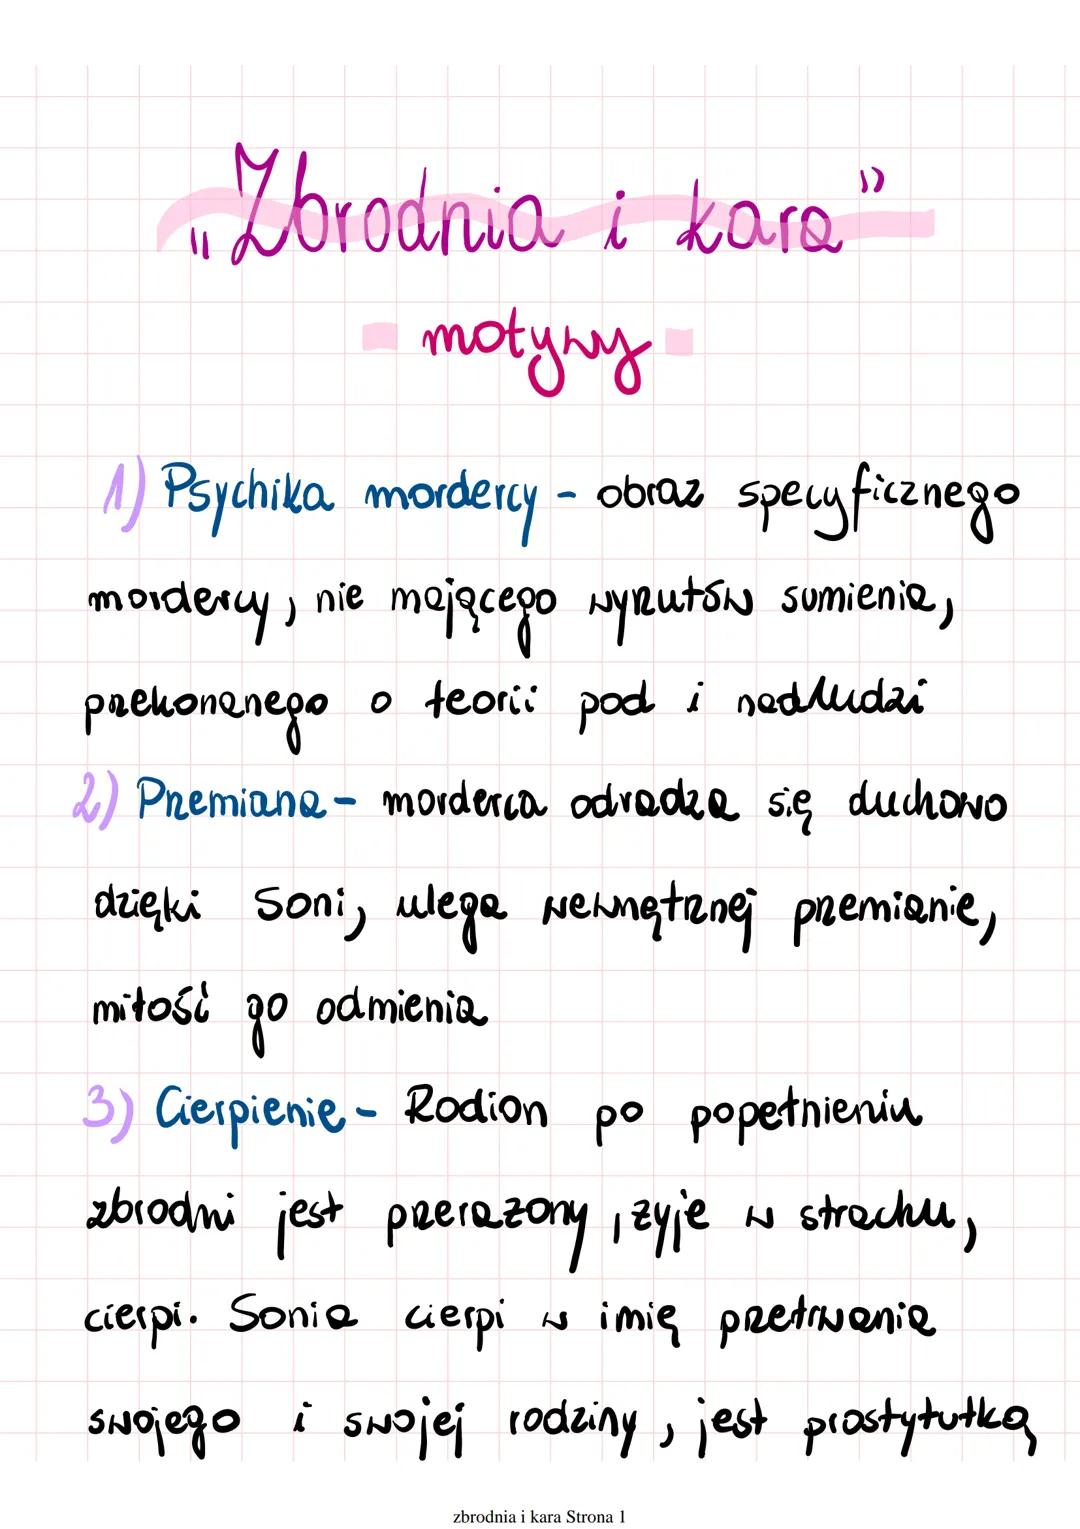 „Zbrodnia i kara”
motywy
1) Psychika mordercy - obraz specyficznego
mordercy, nie mającego wyrzutów sumienia,
przekonanego o teorii pod i nadludzi
2) Przemiana - morderca odradza się duchowo
dzięki Soni, ulega wewnętrznej przemianie,
miłość go odmienia
3) Cierpienie - Rodion po popełnieniu
zbrodni jest przerażony, żyje w strachu,
cierpi. Sonia cierpi w imię przetrwania
swojego i swojej rodziny, jest prostytutką
zbrodnia i kara Strona 1